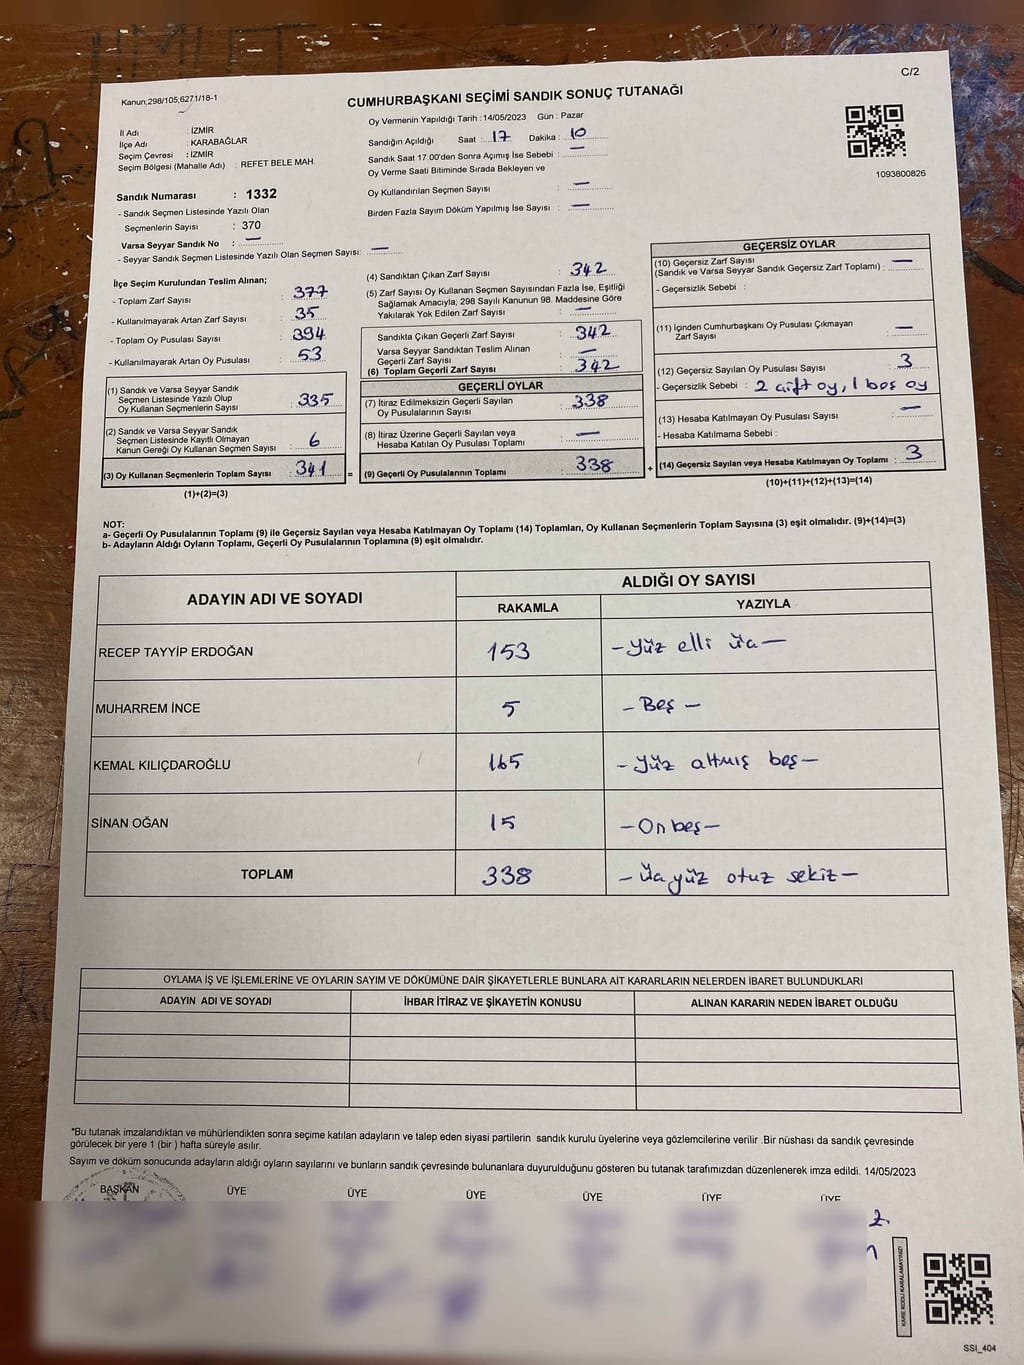 C/2
Kanun;298/105;6271/18-1
CUMHURBAŞKANI SEÇİMİ SANDIK SONUÇ TUTANAĞI
İl Adı : İZMİR
İlçe Adı : KARABAĞLAR
Seçim Çevresi : İZMİR
Seçim Bölgesi (Mahalle Adı) : REFET BELE MAH.
Oy Vermenin Yapıldığı Tarih : 14/05/2023 Gün : Pazar
Sandığın Açıldığı Saat : 17 Dakika : 10
Sandık Saat 17.00'den Sonra Açımış İse Sebebi : —
Oy Verme Saati Bitiminde Sırada Bekleyen ve
Oy Kullandırılan Seçmen Sayısı : —
Birden Fazla Sayım Döküm Yapılmış İse Sayısı : —
1093800826
Sandık Numarası : 1332
- Sandık Seçmen Listesinde Yazılı Olan
Seçmenlerin Sayısı : 370
Varsa Seyyar Sandık No : —
- Seyyar Sandık Seçmen Listesinde Yazılı Olan Seçmen Sayısı: —
İlçe Seçim Kurulundan Teslim Alınan;
- Toplam Zarf Sayısı : 377
- Kullanılmayarak Artan Zarf Sayısı : 35
- Toplam Oy Pusulası Sayısı : 394
- Kullanılmayarak Artan Oy Pusulası : 53
(1) Sandık ve Varsa Seyyar Sandık
Seçmen Listesinde Yazılı Olup
Oy Kullanan Seçmenlerin Sayısı : 335
(2) Sandık ve Varsa Seyyar Sandık
Seçmen Listesinde Kayıtlı Olmayan
Kanun Gereği Oy Kullanan Seçmen Sayısı : 6
(3) Oy Kullanan Seçmenlerin Toplam Sayısı : 341 =
(1)+(2)=(3)
(4) Sandıktan Çıkan Zarf Sayısı : 342
(5) Zarf Sayısı Oy Kullanan Seçmen Sayısından Fazla İse, Eşitliği
Sağlamak Amacıyla; 298 Sayılı Kanunun 98. Maddesine Göre
Yakılarak Yok Edilen Zarf Sayısı : —
Sandıkta Çıkan Geçerli Zarf Sayısı : 342
Varsa Seyyar Sandıktan Teslim Alınan
Geçerli Zarf Sayısı : —
(6) Toplam Geçerli Zarf Sayısı : 342
GEÇERLİ OYLAR
(7) İtiraz Edilmeksizin Geçerli Sayılan
Oy Pusulalarının Sayısı : 338
(8) İtiraz Üzerine Geçerli Sayılan veya
Hesaba Katılan Oy Pusulası Toplamı : —
(9) Geçerli Oy Pusulalarının Toplamı : 338 +
GEÇERSİZ OYLAR
(10) Geçersiz Zarf Sayısı
(Sandık ve Varsa Seyyar Sandık Geçersiz Zarf Toplamı) : —
- Geçersizlik Sebebi :
(11) İçinden Cumhurbaşkanı Oy Pusulası Çıkmayan
Zarf Sayısı : —
(12) Geçersiz Sayılan Oy Pusulası Sayısı : 3
- Geçersizlik Sebebi : 2 çift oy, 1 boş oy
(13) Hesaba Katılmayan Oy Pusulası Sayısı : —
- Hesaba Katılmama Sebebi :
(14) Geçersiz Sayılan veya Hesaba Katılmayan Oy Toplamı : 3
(10)+(11)+(12)+(13)=(14)
NOT:
a- Geçerli Oy Pusulalarının Toplamı (9) ile Geçersiz Sayılan veya Hesaba Katılmayan Oy Toplamı (14) Toplamları, Oy Kullanan Seçmenlerin Toplam Sayısına (3) eşit olmalıdır. (9)+(14)=(3)
b- Adayların Aldığı Oyların Toplamı, Geçerli Oy Pusulalarının Toplamına (9) eşit olmalıdır.
ADAYIN ADI VE SOYADI ALDIĞI OY SAYISI
RAKAMLA YAZIYLA
RECEP TAYYİP ERDOĞAN 153 -Yüz elli üç—
MUHARREM İNCE 5 - Beş -
KEMAL KILIÇDAROĞLU 165 - Yüz altmış beş-
SİNAN OĞAN 15 -On beş-
TOPLAM 338 - Üç yüz otuz sekiz-
OYLAMA İŞ VE İŞLEMLERİNE VE OYLARIN SAYIM VE DÖKÜMÜNE DAİR ŞİKAYETLERLE BUNLARA AİT KARARLARIN NELERDEN İBARET BULUNDUKLARI
ADAYIN ADI VE SOYADI İHBAR İTİRAZ VE ŞİKAYETİN KONUSU ALINAN KARARIN NEDEN İBARET OLDUĞU
*Bu tutanak imzalandıktan ve mühürlendikten sonra seçime katılan adayların ve talep eden siyasi partilerin sandık kurulu üyelerine veya gözlemcilerine verilir .Bir nüshası da sandık çevresinde
görülecek bir yere 1 (bir ) hafta süreyle asılır.
Sayım ve döküm sonucunda adayların aldığı oyların sayılarını ve bunların sandık çevresinde bulunanlara duyurulduğunu gösteren bu tutanak tarafımızdan düzenlenerek imza edildi. 14/05/2023
BAŞKAN ÜYE ÜYE ÜYE ÜYE ÜYE ÜYE
KARE KODU KARALAMAYINIZ!
SSI_404